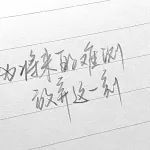 为将来的难测
放弃这一刻